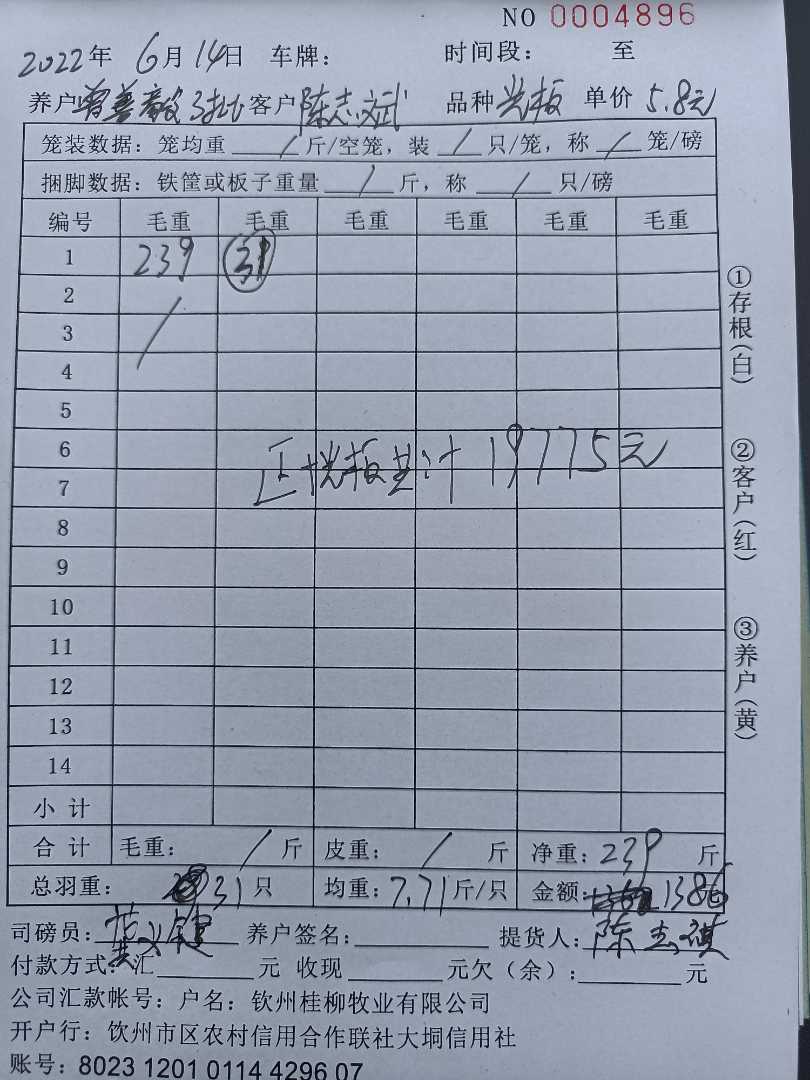 NO 0004896
2022年 6月14日 车牌： 时间段： 至
养户曾善毅3批 客户陈志斌 品种光板 单价 5.8元
笼装数据：笼均重 / 斤/空笼，装 / 只/笼，称 / 笼/磅
捆脚数据：铁筐或板子重量 / 斤，称 / 只/磅
编号 毛重 毛重 毛重 毛重 毛重 毛重
1 239 31
2 /
3
4
5
6
7 正+光板共计 19775元
8
9
10
11
12
13
14
小 计
合 计 毛重： / 斤 皮重： / 斤 净重：239 斤
总羽重： 31只 均重：7.71斤/只 金额： 1386
司磅员： 养户签名： 提货人：陈志斌
付款方式：汇 元 收现 元欠（余）： 元
公司汇款帐号：户名：钦州桂柳牧业有限公司
开户行：饮州市区农村信用合作联社大垌信用社
账号：8023 1201 0114 4296 07
①存根（白）
②客户（红）
③养户（黄）